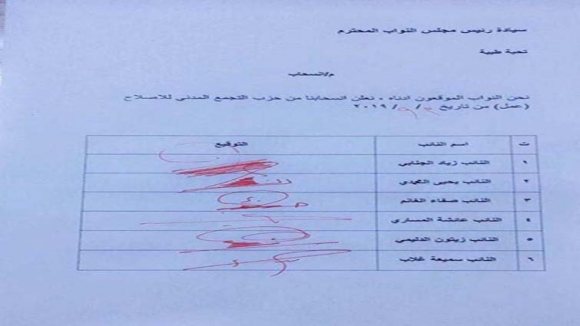 سيادة رئيس مجلس النواب المحترم
تحية طيبة
م/انسحاب
نحن النواب الموقعون ادناه ، نعلن انسحابنا من حزب التجمع المدني للاصلاح
(عمل) من تاريخ / / ٢٠١٩
ت اسم النائب التوقيع
١ النائب زياد الجنابي
٢ النائب يحيى
٣ النائب صفاء الغانم
٤ النائب عائشة المساري
٥ النائب زيتون الدليمي
٦ النائب سميعة غلاب